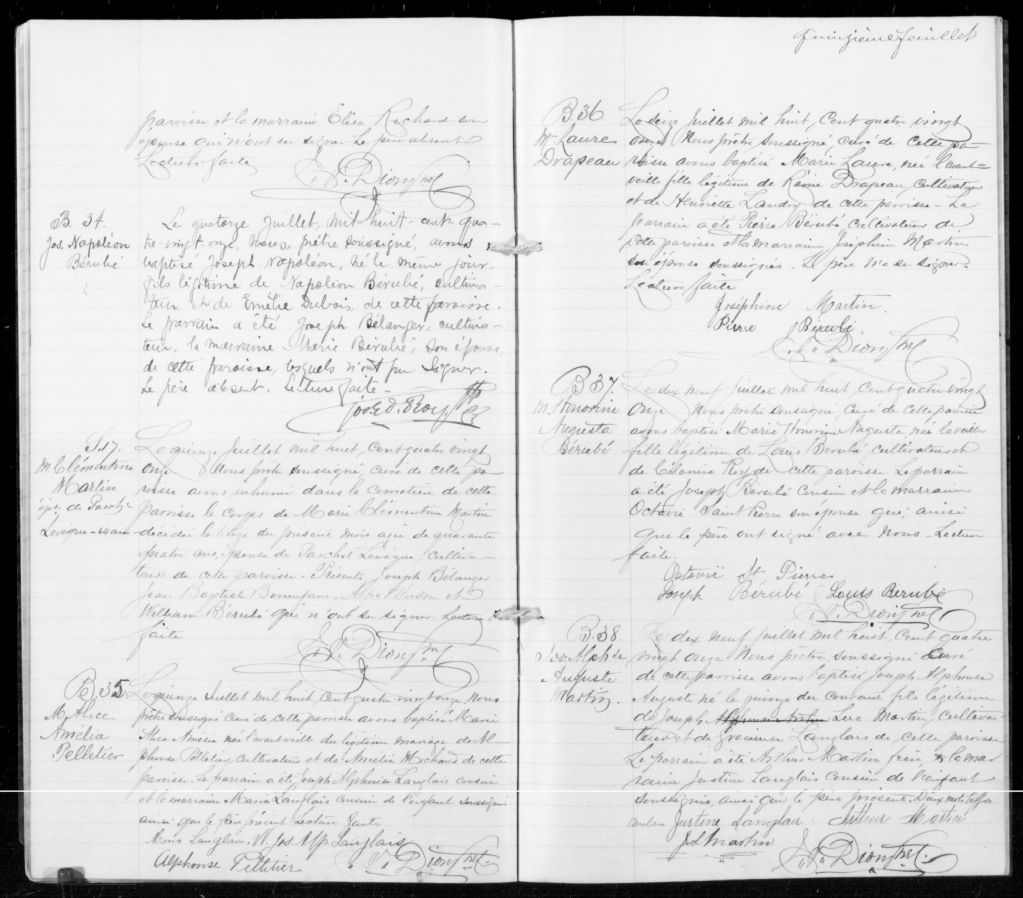 paroisse et la marraine Elisa Richard son
épouse qui n'ont su signer. Le père absent
Lecture faite
B 34.
Jos. Napoléon
Bérubé
Le quatorze juillet, mil huit-cent-qua-
tre-vingt onze, nous, prêtre soussigné, avons
baptisé Joseph Napoléon, né le même jour,
fils légitime de Napoléon Bérubé, cultiva-
teur, et de Emélie Dubois, de cette paroisse.
Le parrain a été Joseph Bélanger, cultiva-
teur, la marraine Marie Bérubé, son épouse,
de cette paroisse, lesquels n'ont pu signer.
Le père absent. Lecture faite.
S 17.
M Clémentine
Martin
épse de Paschl
Levesque - 44 ans
Le quinze Juillet mil huit, Cent quatre vingt
onze Nous prêtre soussigné, curé de cette pa-
roisse avons inhumé dans le Cimetière de cette
Paroisse le Corps de Marie Clémentine Martin
décédée le treize du présent mois agée de quarante
quatre ans, épouse de Paschel Levêque, cultiva-
teur de cette paroisse. Présents Joseph Bélanger
Jean Baptiste et
William Bérubé qui n'ont su signer. Lecture
faite
B. 35
M. Alice
Amelia
Pelletier
Le quinze Juillet mil huit, Cent quatre vingt onze, Nous
prêtre soussigné Curé de cette paroisse avons baptisé Marie
Alice Amélia née l'avant veille du légitime mariage de Al
phonse Pelletier, Cultivateur et de Amelia Michaud de cette
paroisse. Le parrain a été Joseph Alphonse Langlais cousin
et la marraine Maria Langlais cousine de l'enfant soussignés
ainsi que le père présent Lecture faite
Maria Langlais. Jos Alp. Langlais
Alphonse Pelletier
quinzième feuillet
B 36
M Laure
Drapeau
Le seize Juillet mil huit, Cent quatre vingt
onze Nous prêtre soussigné, curé de cette pa-
roisse avons baptisé Marie Laure, née l'avant-
veille fille légitime de Rémi Drapeau Cultivateur
et de Henriette Landry de cette paroisse - Le
parrain a été Pierre Bérubé Cultivateur de
cette paroisse et la marraine Joséphine Martin
son épouse soussignés. Le père n'a su signer.
Lecture faite
Josephine Martin.
Pierre Bérubé.
B 37.
M. Honorine
Augusta
Bérubé
Le dix neuf Juillet mil huit, Cent quatre vingt
onze Nous prêtre soussigné, Curé de cette paroisse
avons baptisé Marie Honorine Augusta, née la veille
fille légitime de Louis Bérubé cultivateur et
de Célanire Roy de cette paroisse. Le parrain
a été Joseph Bérubé Cousin et la marraine
Octavie Saint Pierre son épouse qui, ainsi
que le père ont signé avec Nous - Lecture
faite.
Octavie St Pierre
Joseph Bérubé Louis Berubé
B. 38.
Jos. Alphse
Auguste
Martin.
Le dix neuf Juillet mil huit, Cent quatre
vingt onze Nous prêtre, soussigné Curé
de cette paroisse avons baptisé Joseph Alphonse
Auguste né le quinze du courant fils légitime
de Joseph Luc Martin, cultiva-
teur et de Gracieuse Langlais de cette paroisse
Le parrain a été Arthur Martin frère, et la mar
raine Justine Langlais Cousine de l'enfant
soussignés ainsi que le père présent. Deux mots biffés
nuls Justine Langlais Arthur Martin
J L Martin